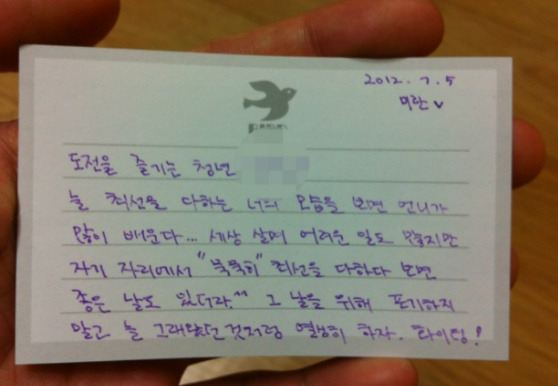 2012. 7. 5
미란 v
도전을 즐기는 청년
늘 최선을 다하는 너의 모습을 보면 언니가
많이 배운다... 세상 살며 어려운 일도 많지만
자기 자리에서 "묵묵히" 최선을 다하다 보면
좋은 날도 있더라.^^ 그 날을 위해 포기하지
말고 늘 그래왔던 것처럼 열심히 하자. 화이팅!